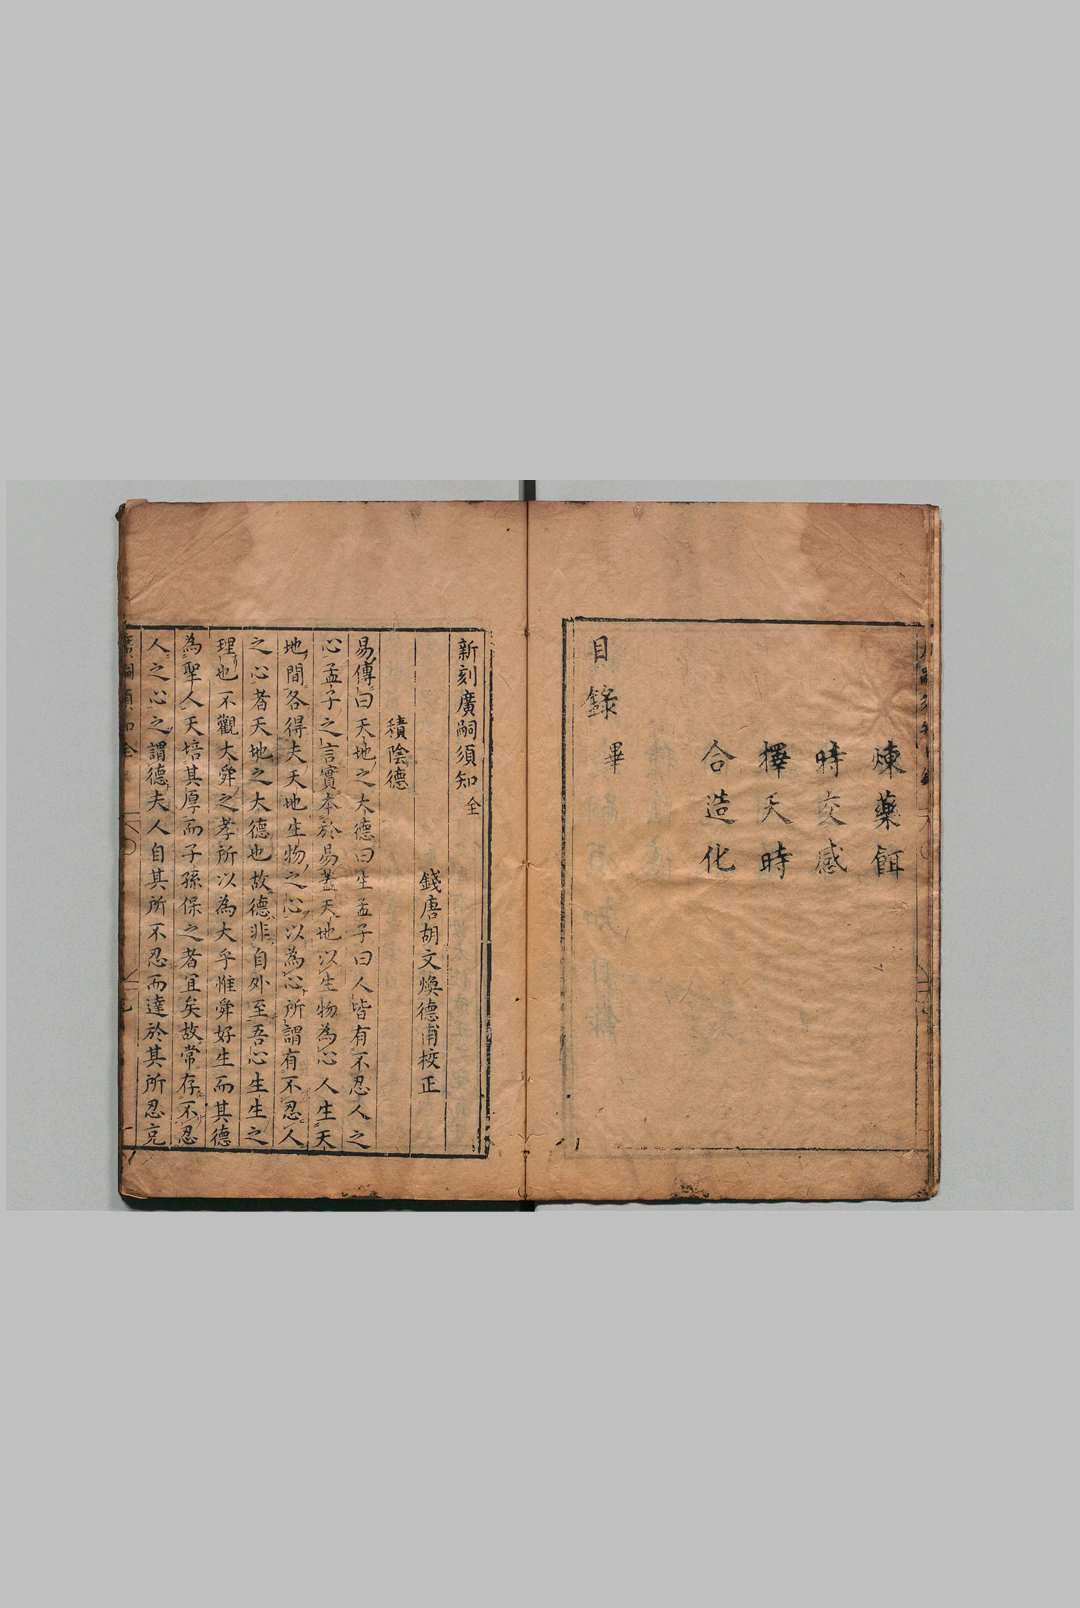 煉藥餌
時交感
擇天時
合造化
目錄 畢
新刻廣嗣須知 全
錢唐胡文煥德甫校正
積陰德
易傳曰天地之大德曰生孟子曰人皆有不忍人之
心孟子之言實本於易蓋天地以生物為心人生天
地間各得夫天地生物之心以為心所謂有不忍人
之心者天地之大德也故德非自外至吾心生生之
理也不觀大舜之孝所以為大乎惟舜好生而其德
為聖人天培其厚而子孫保之者宜矣故常存不忍
人之心之謂德夫人自其所不忍而達於其所忍克